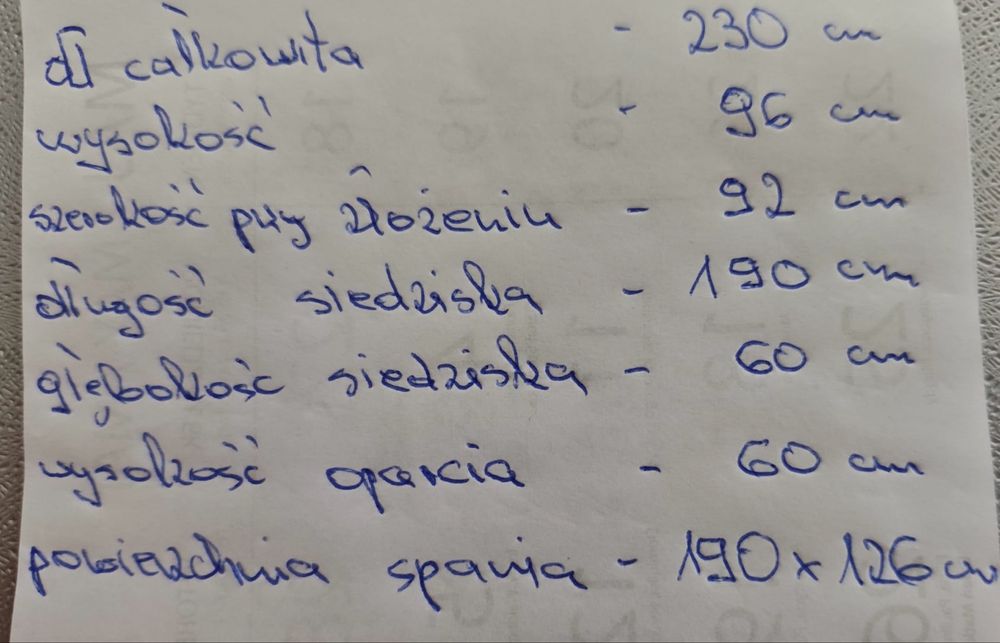 dł całkowita - 230 cm
wysokość - 96 cm
szerokość przy złożeniu - 92 cm
długość siedziska - 190 cm
głębokość siedziska - 60 cm
wysokość oparcia - 60 cm
powierzchnia spania - 190 x 126 cm